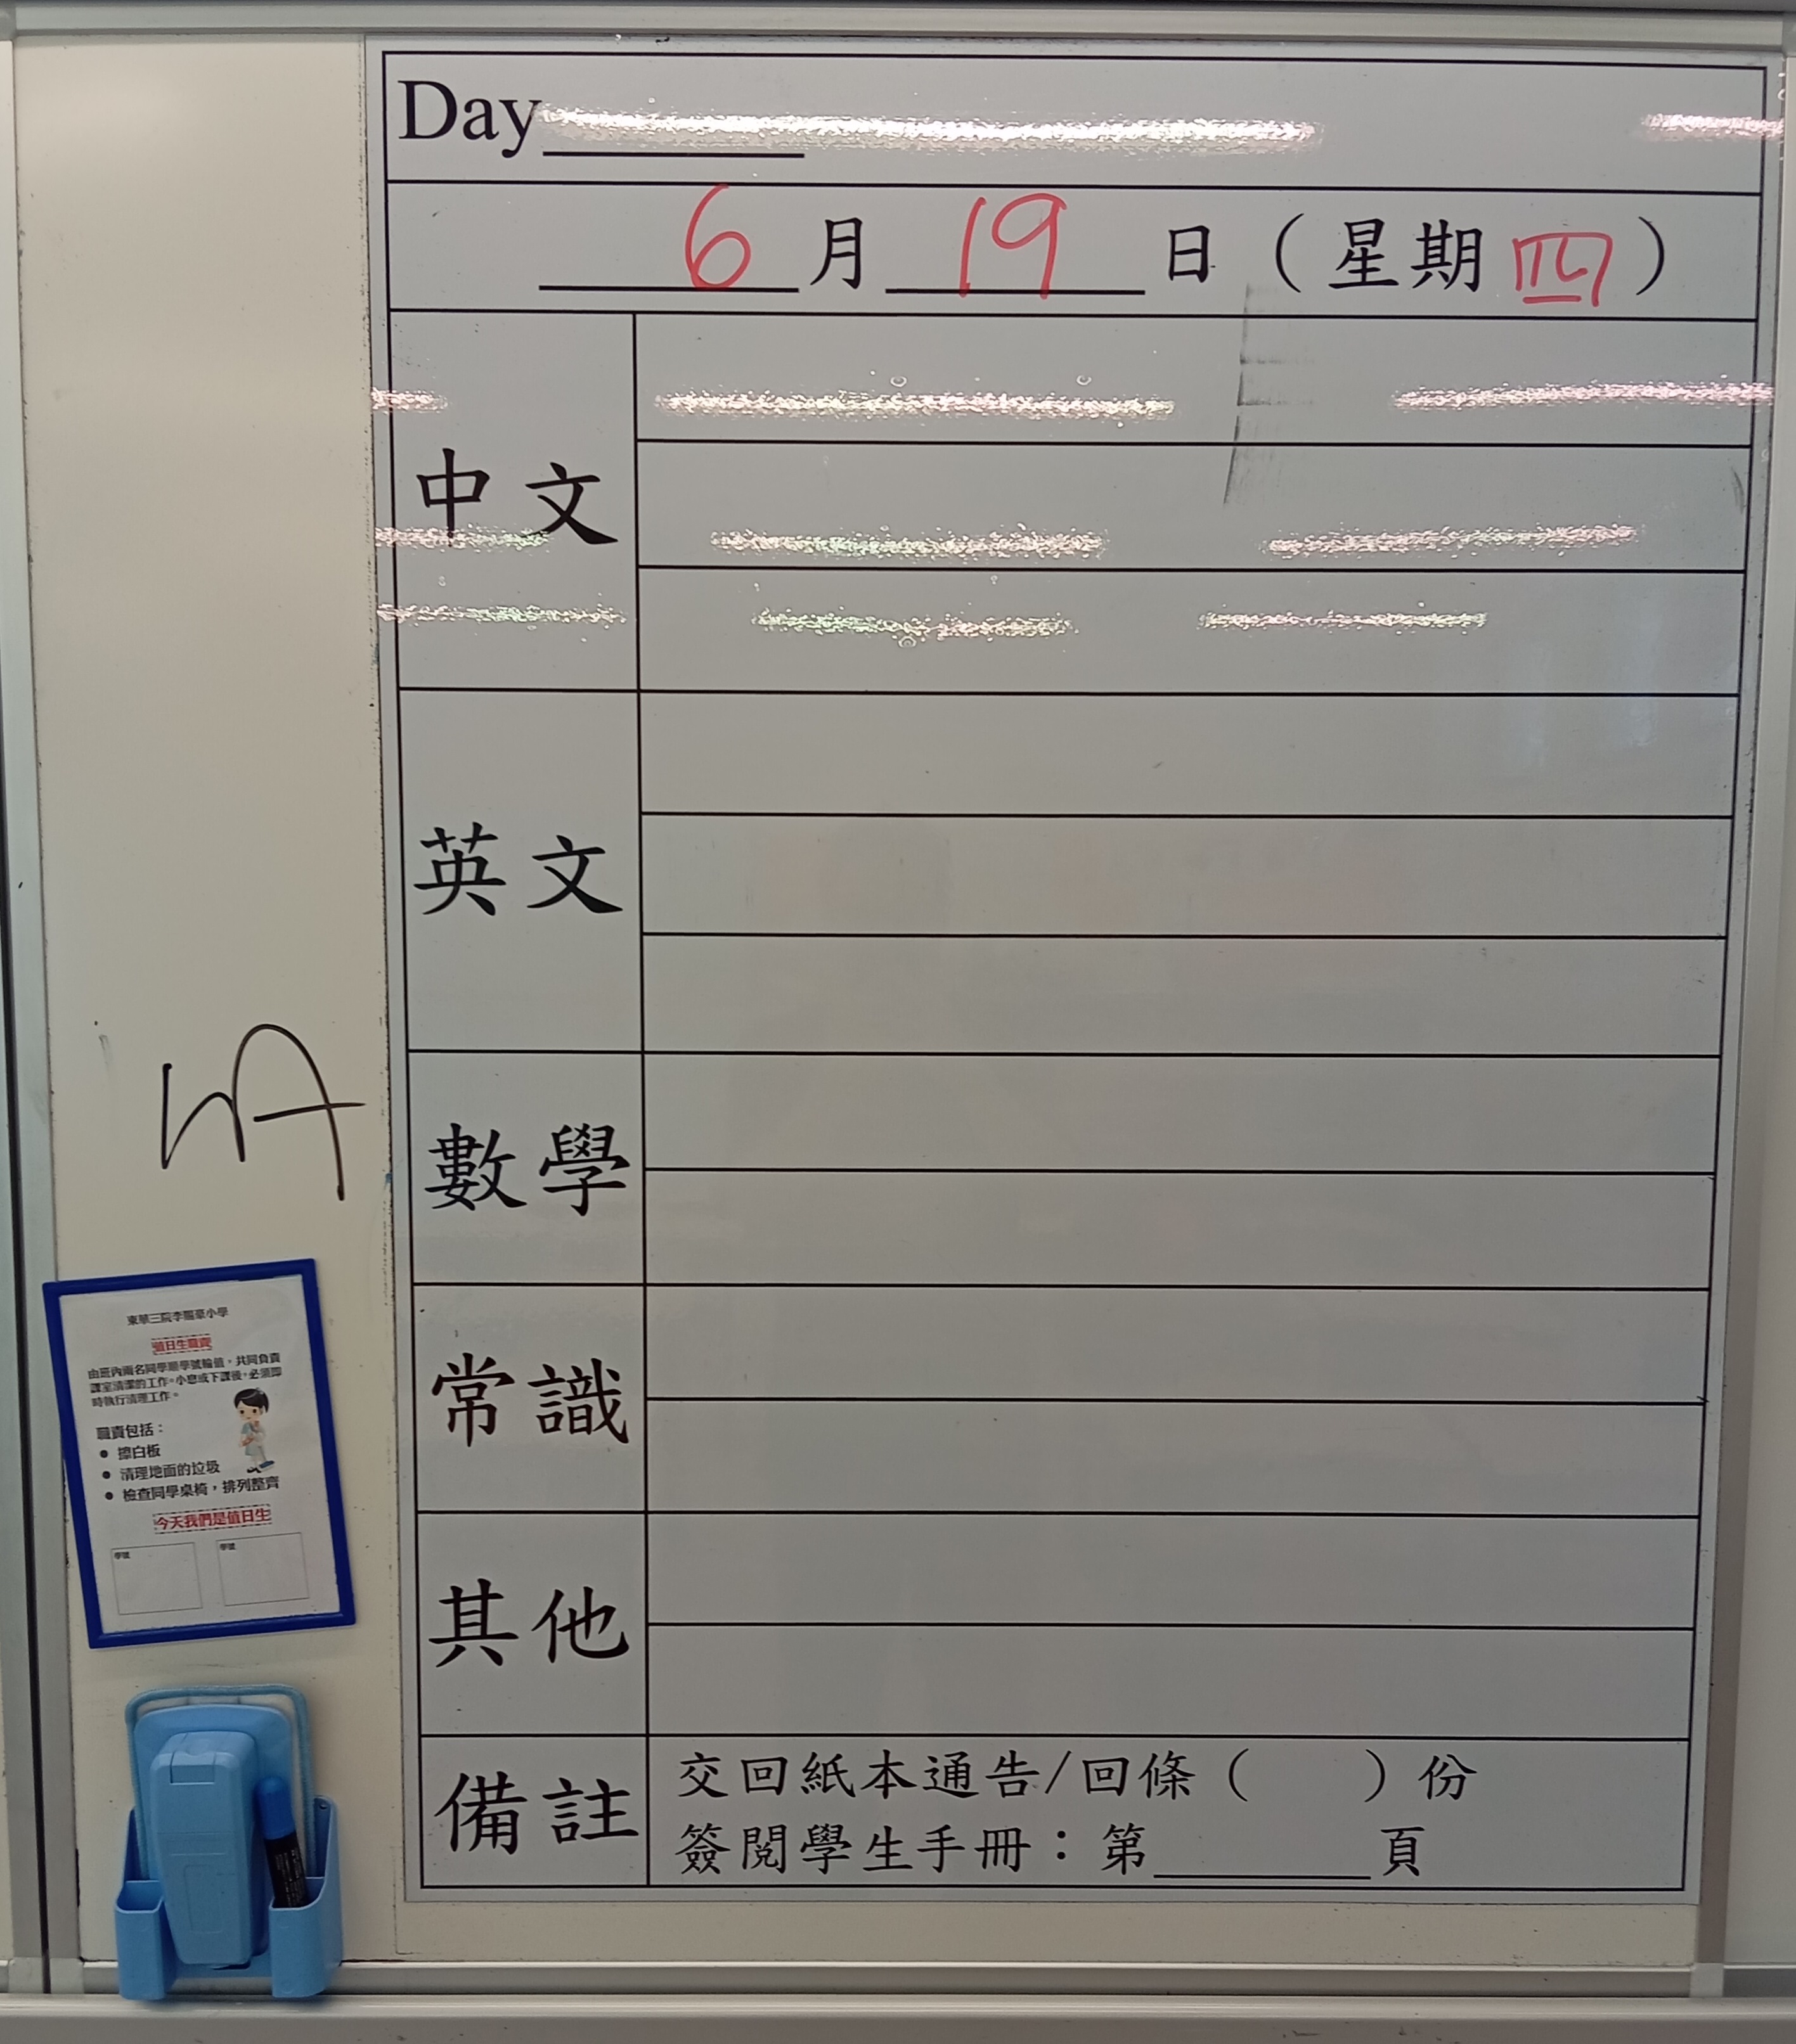 Day
6月19日（星期四）
中文
英文
數學
常識
其他
備註
交回紙本通告/回條（　　）份
簽閱學生手冊：第　　頁
東華三院李賜豪小學
值日生職責
由班內兩名同學順學號輪值，共同負責
課室清潔的工作。小息或下課後，必須即
時執行清理工作。
職責包括：
● 擦白板
● 清理地面的垃圾
● 檢查同學桌椅，排列整齊
今天我們是值日生
學號
學號